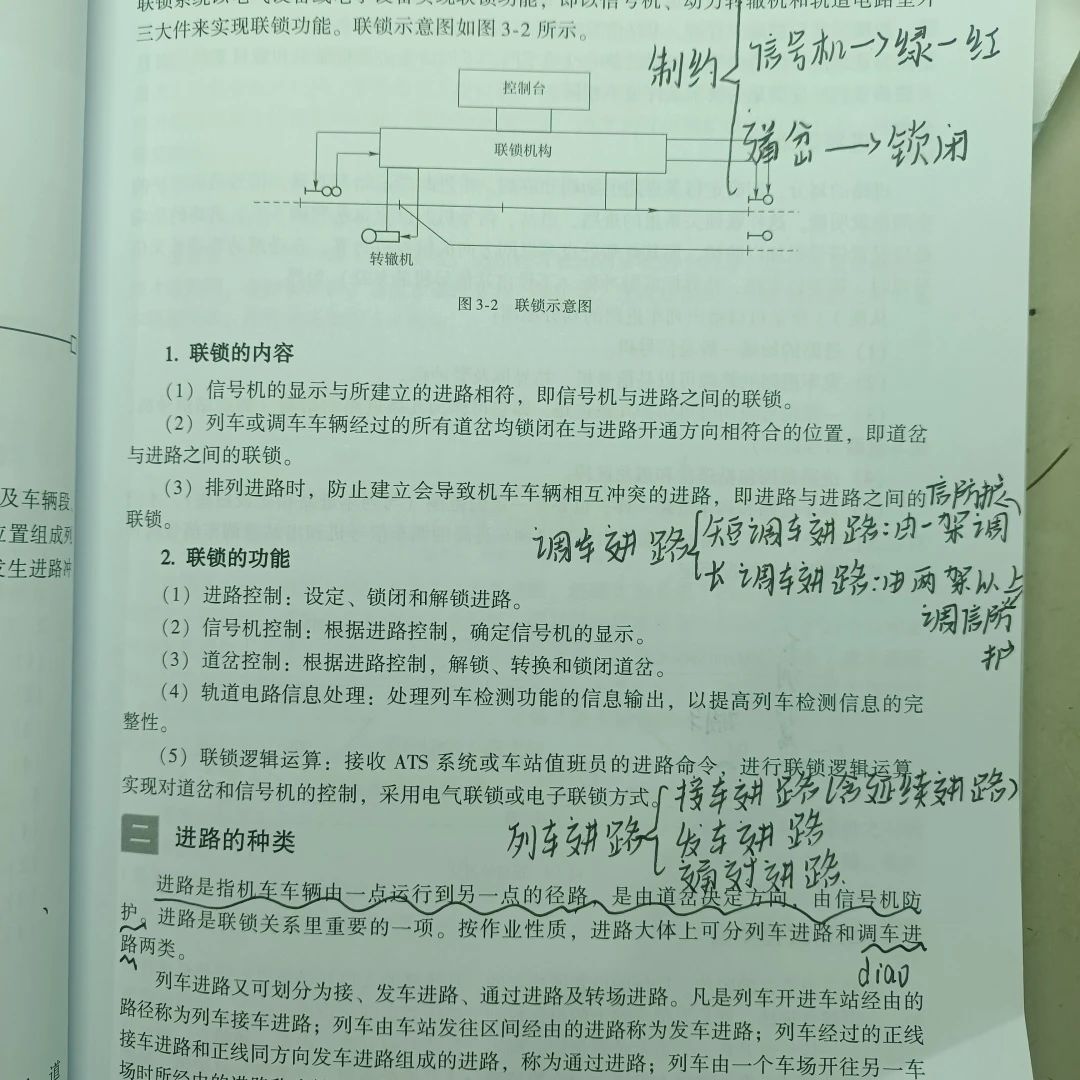 联锁系统以电气设备或电子设备实现联锁功能，即以信号机、动力转辙机和轨道电路室外
三大件来实现联锁功能。联锁示意图如图 3-2 所示。
制约
信号机→绿—红
道岔→锁闭
控制台
联锁机构
转辙机
图 3-2 联锁示意图
1. 联锁的内容
（1）信号机的显示与所建立的进路相符，即信号机与进路之间的联锁。
（2）列车或调车车辆经过的所有道岔均锁闭在与进路开通方向相符合的位置，即道岔
与进路之间的联锁。
（3）排列进路时，防止建立会导致机车车辆相互冲突的进路，即进路与进路之间的
联锁。
信防护
调车进路
短调车进路：由一架调
长调车进路：由两架以上
调信防
护
2. 联锁的功能
（1）进路控制：设定、锁闭和解锁进路。
（2）信号机控制：根据进路控制，确定信号机的显示。
（3）道岔控制：根据进路控制，解锁、转换和锁闭道岔。
（4）轨道电路信息处理：处理列车检测功能的信息输出，以提高列车检测信息的完
整性。
（5）联锁逻辑运算：接收 ATS 系统或车站值班员的进路命令，进行联锁逻辑运算，
实现对道岔和信号机的控制，采用电气联锁或电子联锁方式。
列车进路
接车进路（含延续进路）
发车进路
通过进路
二 进路的种类
进路是指机车车辆由一点运行到另一点的径路，是由道岔决定方向，由信号机防
护。进路是联锁关系里重要的一项。按作业性质，进路大体上可分列车进路和调车进
路两类。
diao
列车进路又可划分为接、发车进路、通过进路及转场进路。凡是列车开进车站经由的
路径称为列车接车进路；列车由车站发往区间经由的进路称为发车进路；列车经过的正线
接车进路和正线同方向发车进路组成的进路，称为通过进路；列车由一个车场开往另一车
场时所经由的进路称
及车辆段
位置组成列
发生进路冲
道